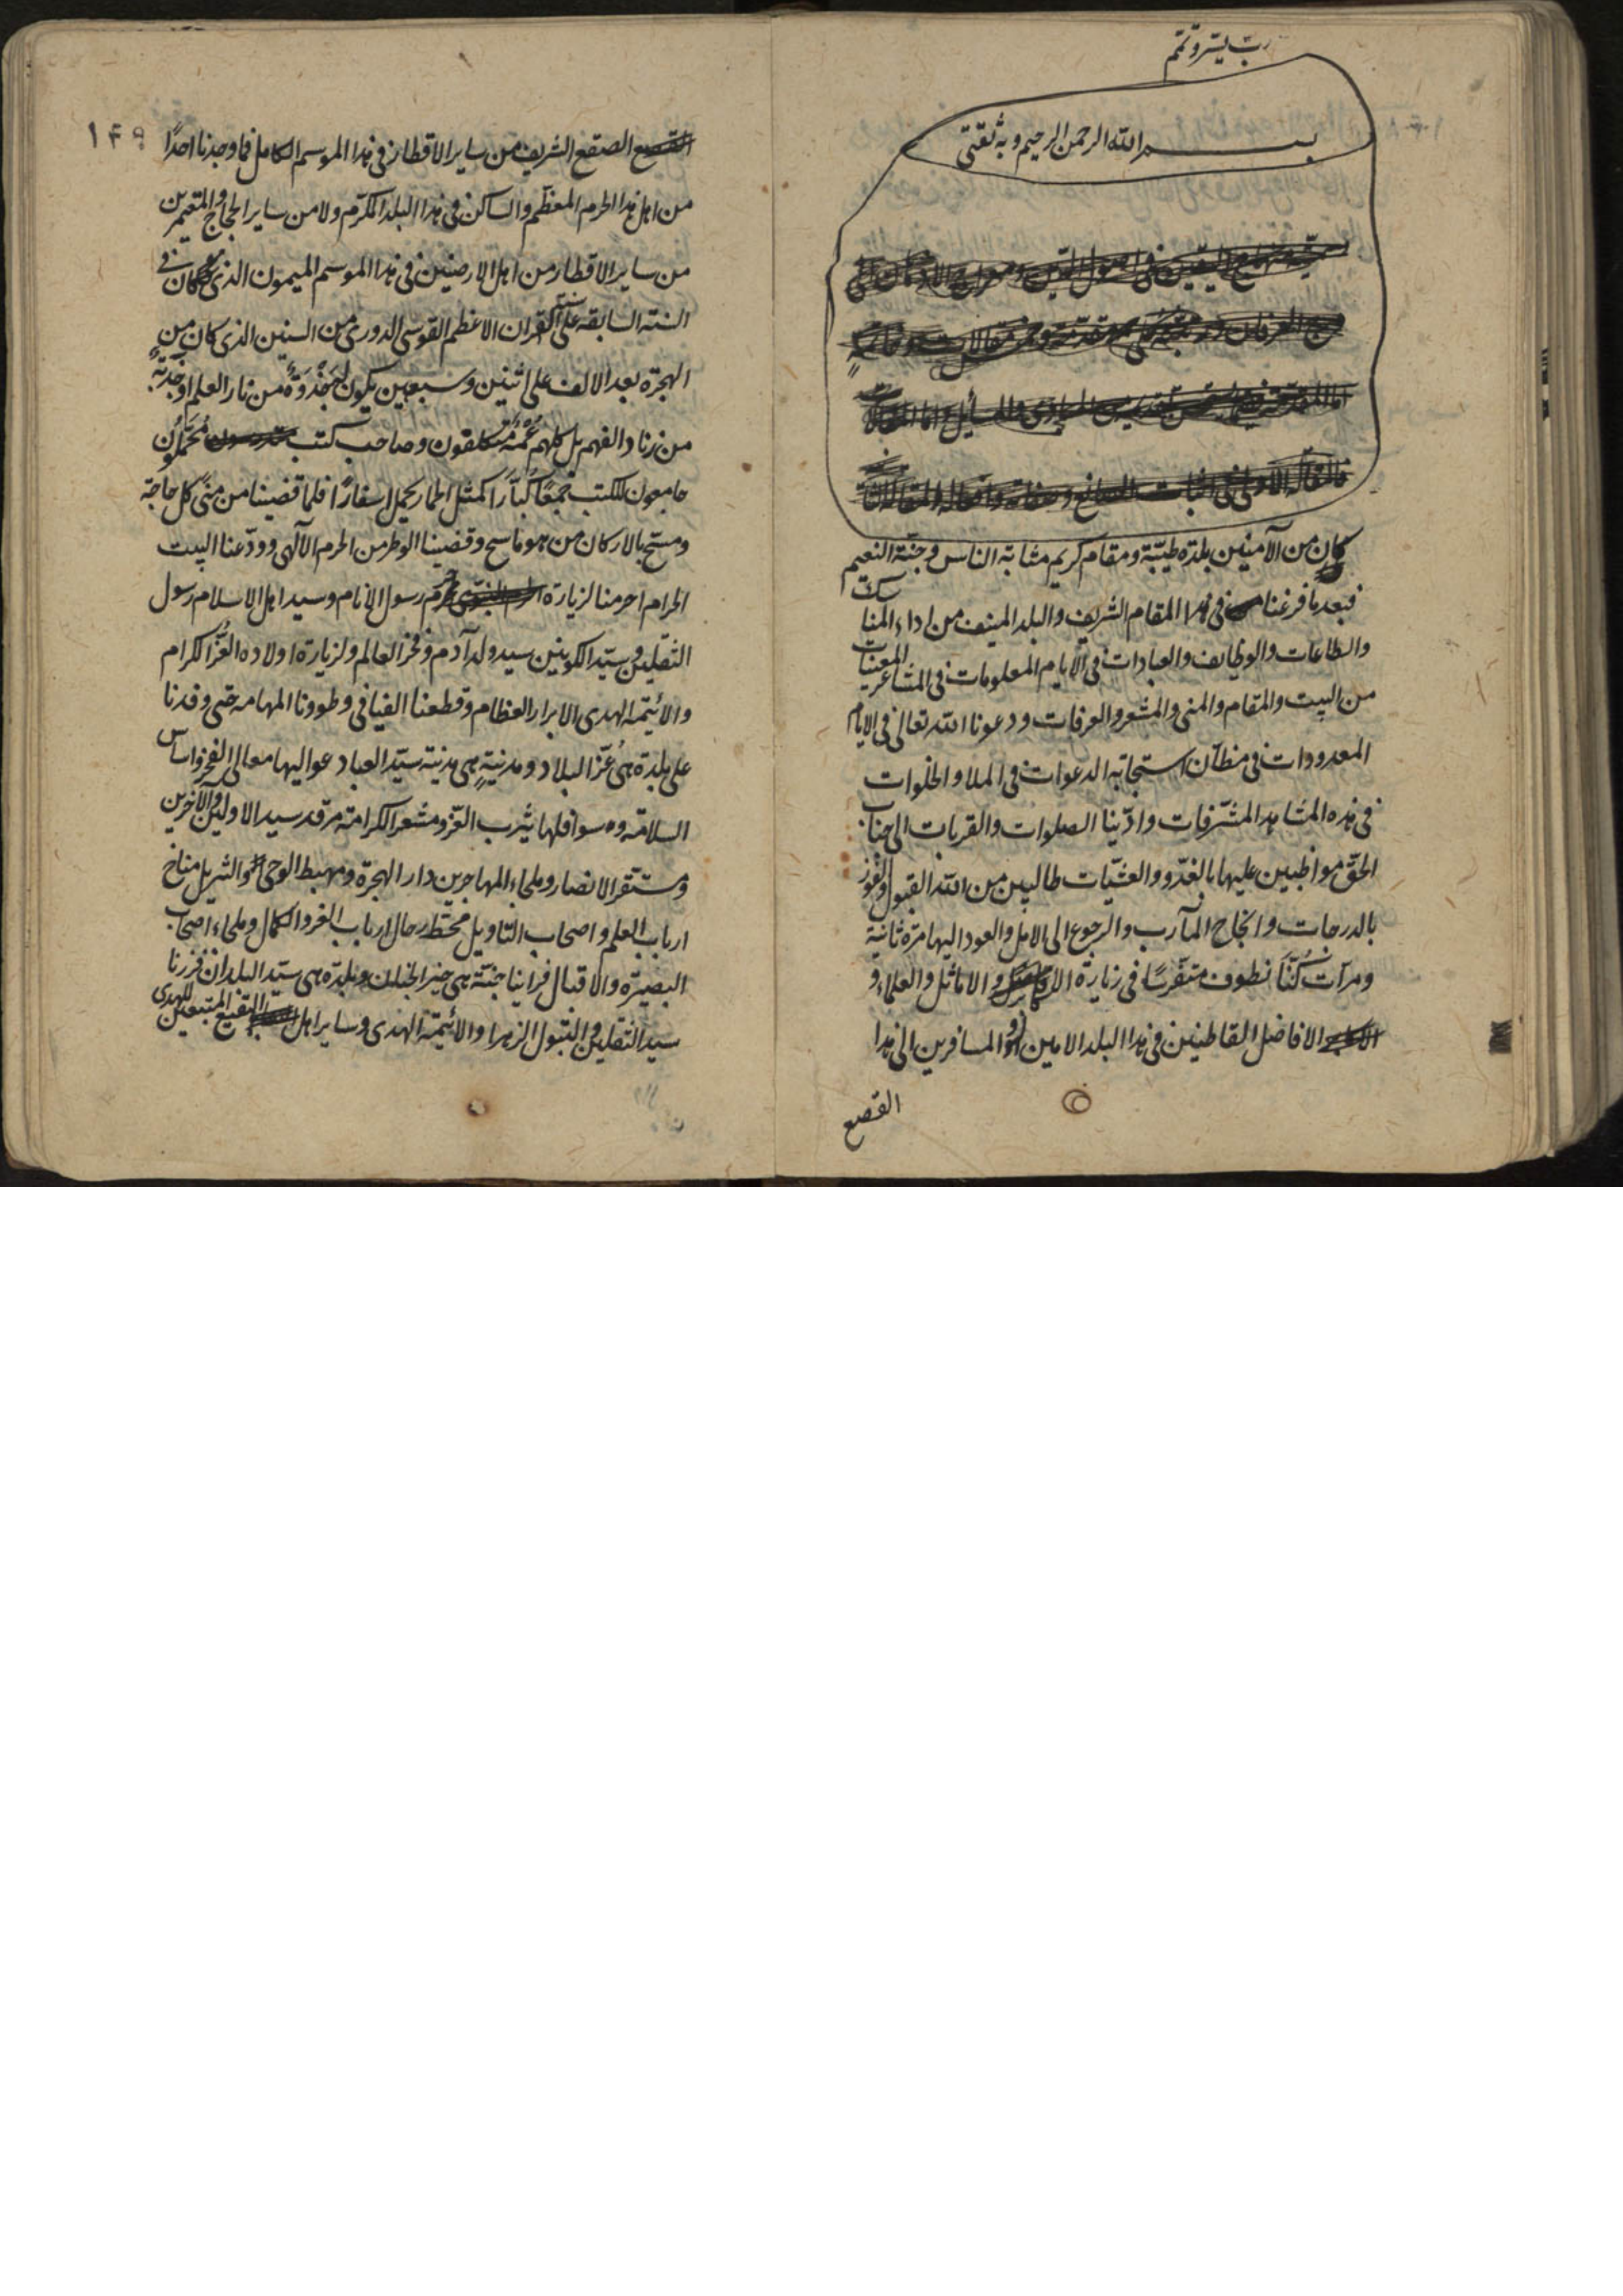 رب یسر و تمم
بسم الله الرحمن الرحیم و به ثقتی
کان من الآمنین بلدة طیبة و مقام کریم مثابة الناس و جنة النعیم
فبعد ما فرغنا فی هذا المقام الشریف والبلد المنیف من اداء المناسک
والطاعات والوظایف والعبادات فی الایام المعلومات فی المشاعر المعینات
من البیت والمقام والمنی والمشعر والعرفات ودعونا الله تعالی فی الایام
المعدودات فی مظان استجابة الدعوات فی الملا والخلوات
فی هذه المشاهد المشرفات وادینا الصلوات والقربات الی جناب
الحق مواظبین علیها بالغدو والعشیات طالبین من الله القبول والفوز
بالدرجات وانجاح المآرب والرجوع الی الاهل والعود الیها مرة ثانیة
ومرآت کنا نطوف متفرسا فی زیارة الاکابر والاماثل والعلماء و
الافاضل القاطنین فی هذا البلد الامین او المسافرین الی هذا
القصع
۱۴۹
الصقع الشریف من سایر الاقطار فی هذا الموسم الکامل فما وجدنا احدًا
من اهل هذا الحرم المعظم والساکن فی هذا البلد المکرم ولا من سایر الحجاج والمعتمرین
من سایر الاقطار من اهل الارضین فی هذا الموسم المیمون الذی کان فی
السنة السابقة علی سنة القران الاعظم القوسی الدوری من السنین الذی کان من
الهجرة بعد الالف علی اثنین وسبعین یکون له جَذْوَةٌ من نار العلم او جذبةٌ
من زناد الفهم بل کلهم وصاحب کتب مُحَمَّلُون
جامعون للکتب جمعًا کُبّارًا کمثل الحمار یحمل اسفارًا فلما قضینا من منی کل حاجة
ومسح بالارکان من هو ماسح وقضینا الوطر من الحرم الآلهی وودعنا البیت
الحرام احرمنا لزیارة حرم رسول الانام وسید اهل الاسلام رسول
الثقلین وسید الکونین سید ولد آدم وفخر العالم ولزیارة اولاده الغُرّ الکرام
والائمة الهدی الابرار العظام وقطعنا الفیافی وطوونا المهامه حتی وفدنا
علی بلدة هی غُرّ البلاد ومدینةٍ هی مدینة سید العباد عوالیها معالی الفخر واساس
السلامة وسوافلها یثرب العز ومشعر الکرامة مرقد سید الاولین والآخرین
ومستقر الانصار وملجاء المهاجرین دار الهجرة ومهبط الوحی والتنزیل مناخ
ارباب العلم واصحاب التاویل محط رحال ارباب الغر والکمال وملجاء اصحاب
البصیرة والاقبال فراینا جنة هی خیر الجنان وبلدة هی سید البلدان فزرنا
سید الثقلین والبتول الزهرا والائمة الهدی وسایر اهل البقیع المتبعین للهدی